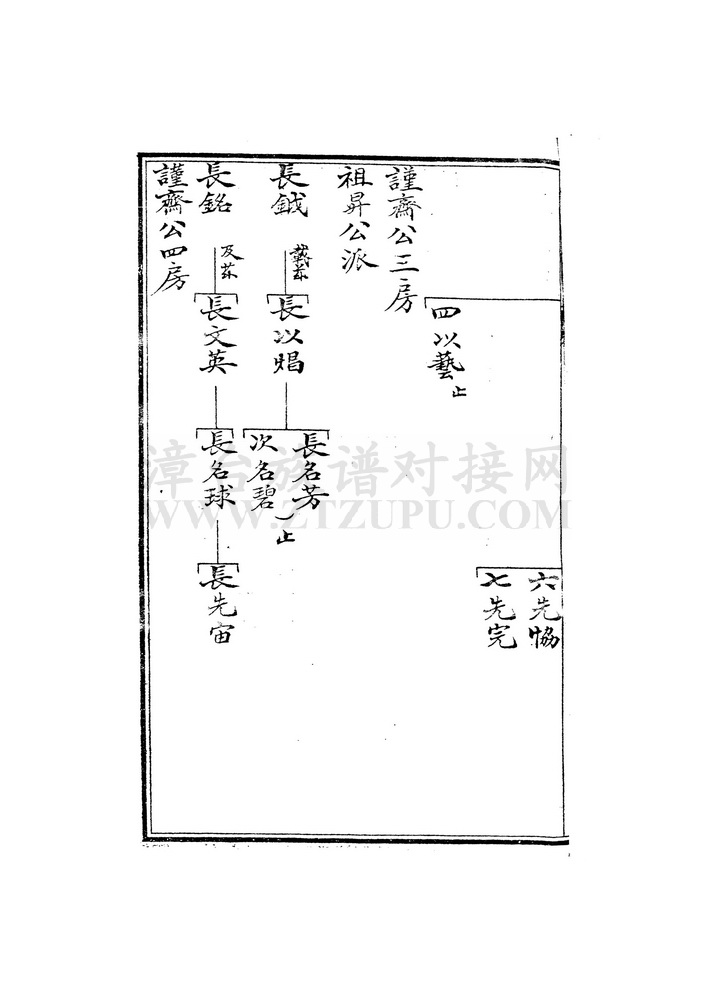 六先恊
七先完
四以藝止
謹齋公三房
祖昇公派
長鉞
長以焻
長名芳
次名碧止
長銘
長文英
長名球
長先宙
謹齋公四房
漳台族谱对接网
WWW.ZTZUPU.COM